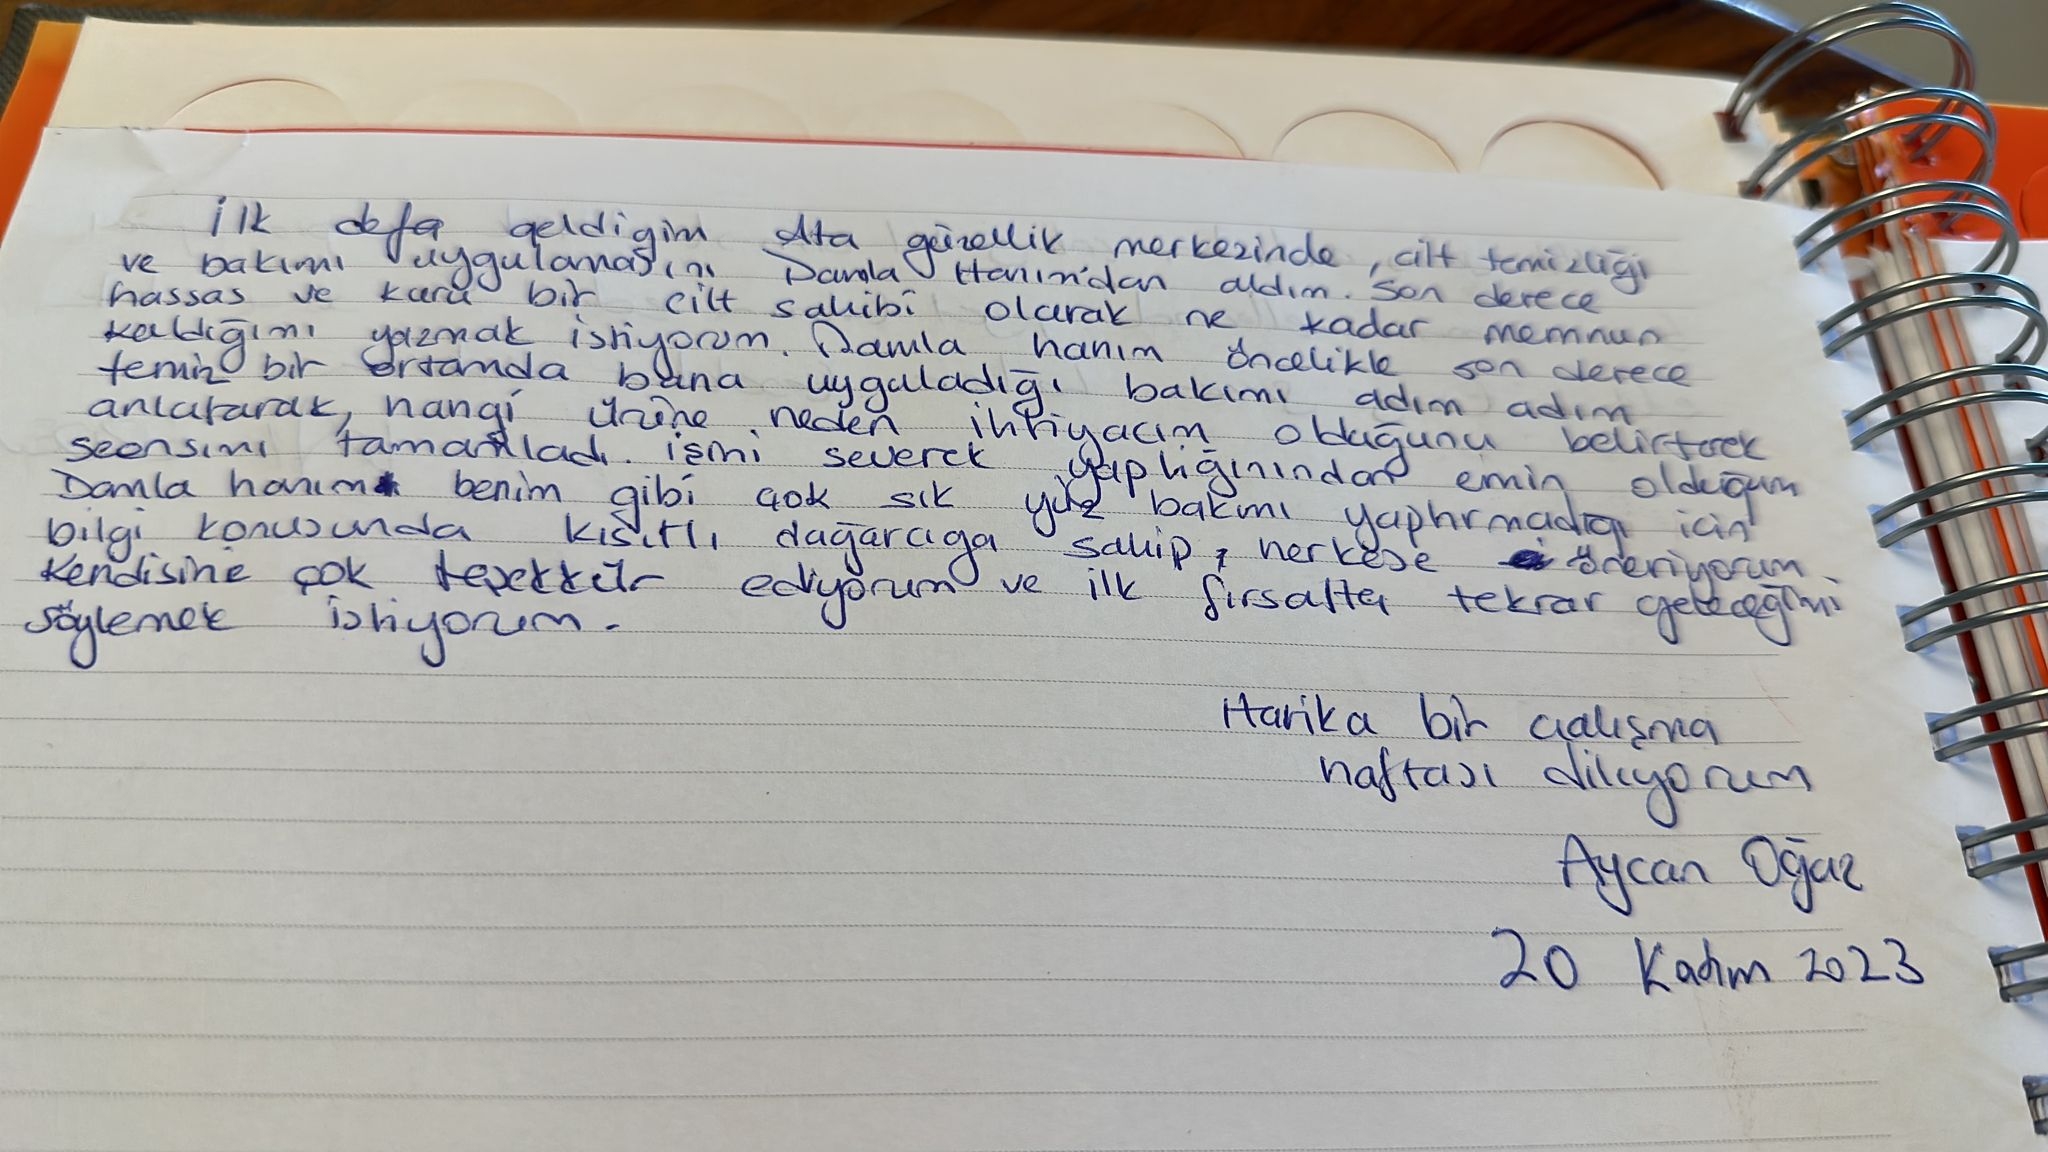 İlk defa geldiğim Ata güzellik merkezinde, cilt temizliği
ve bakımı uygulamasını Damla Hanım'dan aldım. Son derece
hassas ve kuru bir cilt sahibi olarak ne kadar memnun
kaldığımı yazmak istiyorum. Damla hanım öncelikle son derece
temiz bir ortamda bana uyguladığı bakımı adım adım
anlatarak, hangi ürüne neden ihtiyacım olduğunu belirterek
seansımı tamamladı. işini severek yaptığınından emin olduğum
Damla hanımı benim gibi çok sık yüz bakımı yaptırmadığı için
bilgi konusunda kısıtlı dağarcığa sahip, herkese öneriyorum
Kendisine çok teşekkür ediyorum ve ilk fırsatta tekrar geleceğimi
söylemek istiyorum.
Harika bir çalışma
haftası diliyorum
Aycan Oğuz
20 Kasım 2023